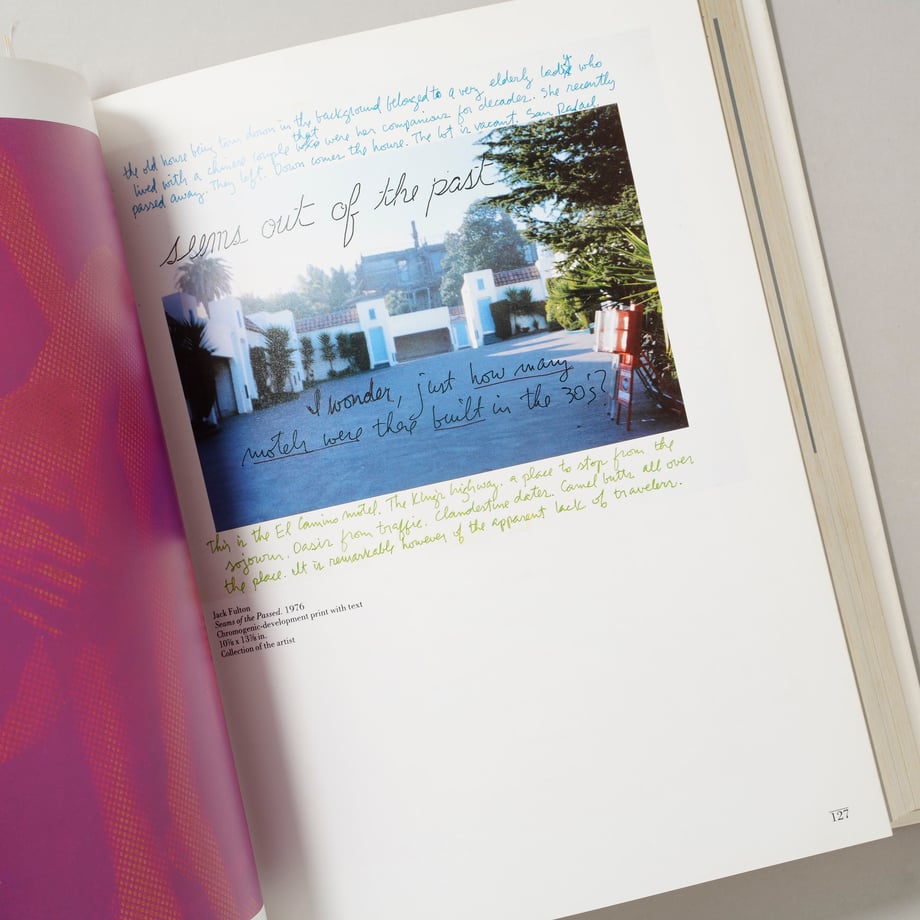 the old house being torn down in the background belonged to a very elderly lady who
lived with a chinese couple that were her companions for decades. She recently
passed away. They left. Down comes the house. The lot is vacant. San Rafael.
seems out of the past
I wonder, just how many
motels were there built in the 30's?
This is the El Camino motel. The Kings highway. a place to stop from the
sojourn. Oasis from traffic. Clandestine dates. Camel butts all over
the place. It is remarkable however of the apparent lack of travelers.
Jack Fulton
Seams of the Passed. 1976
Chromogenic-development print with text
10⅜ x 13⅜ in.
Collection of the artist
127